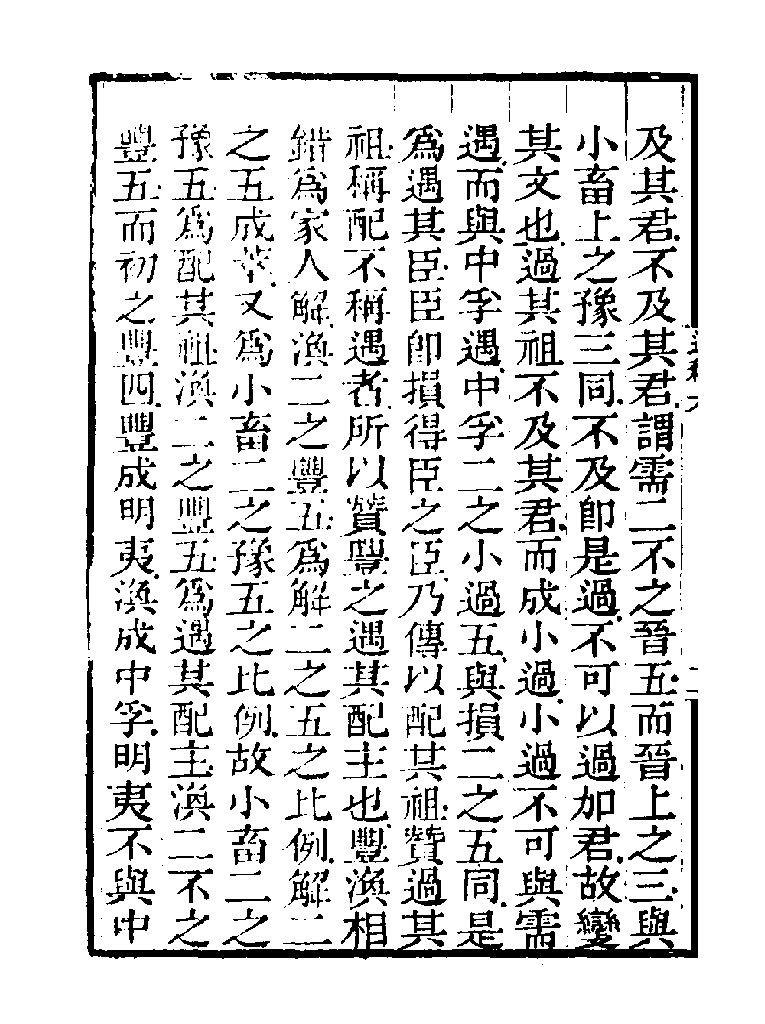 及其君不及其君謂需二不之晉五而晉上之三與
小畜上之豫三同不及卽是過不可以過加君故變
其文也過其祖不及其君而成小過小過不可與需
遇而與中孚遇中孚二之小過五與損二之五同是
爲遇其臣臣卽損得臣之臣乃傳以配其祖贊過其
祖稱配不稱遇者所以贊豐之遇其配主也豐渙相
錯爲家人解渙二之豐五爲解二之五之比例解二
之五成萃又爲小畜二之豫五之比例故小畜二之
豫五爲配其祖渙二之豐五爲遇其配主渙二不之
豐五而初之豐四豐成明夷渙成中孚明夷不與中